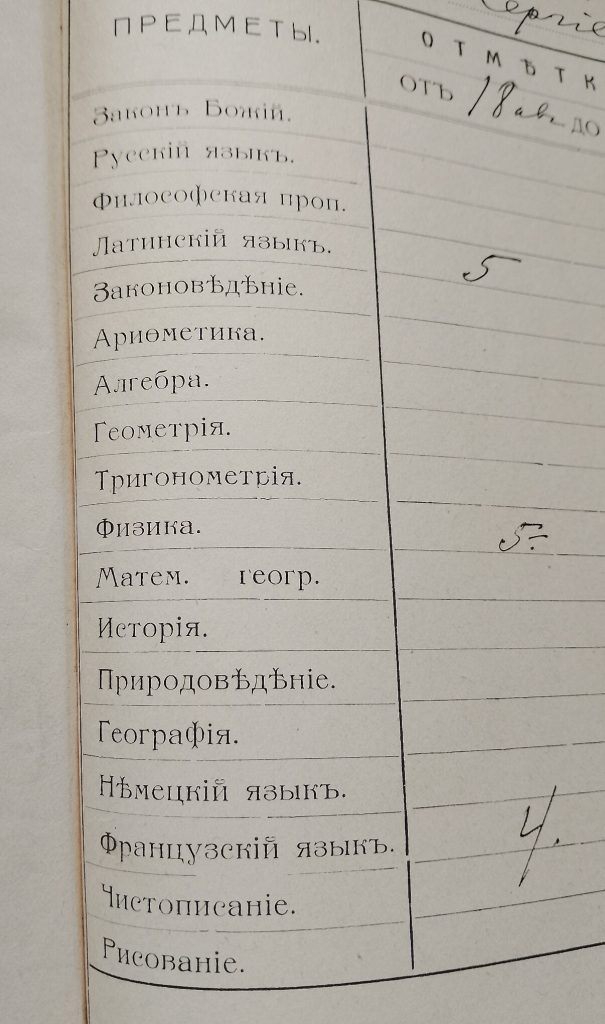 ПРЕДМЕТЫ.
ОТМѢТК
отъ 18 авг. до
Законъ Божій.
Русскій языкъ.
Философская проп.
Латинскій языкъ. 5
Законовѣдѣніе.
Ариѳметика.
Алгебра.
Геометрія.
Тригонометрія.
Физика. 5-
Матем. геогр.
Исторія.
Природовѣдѣніе.
Географія.
Нѣмецкій языкъ.
Французскій языкъ. 4.
Чистописаніе.
Рисованіе.